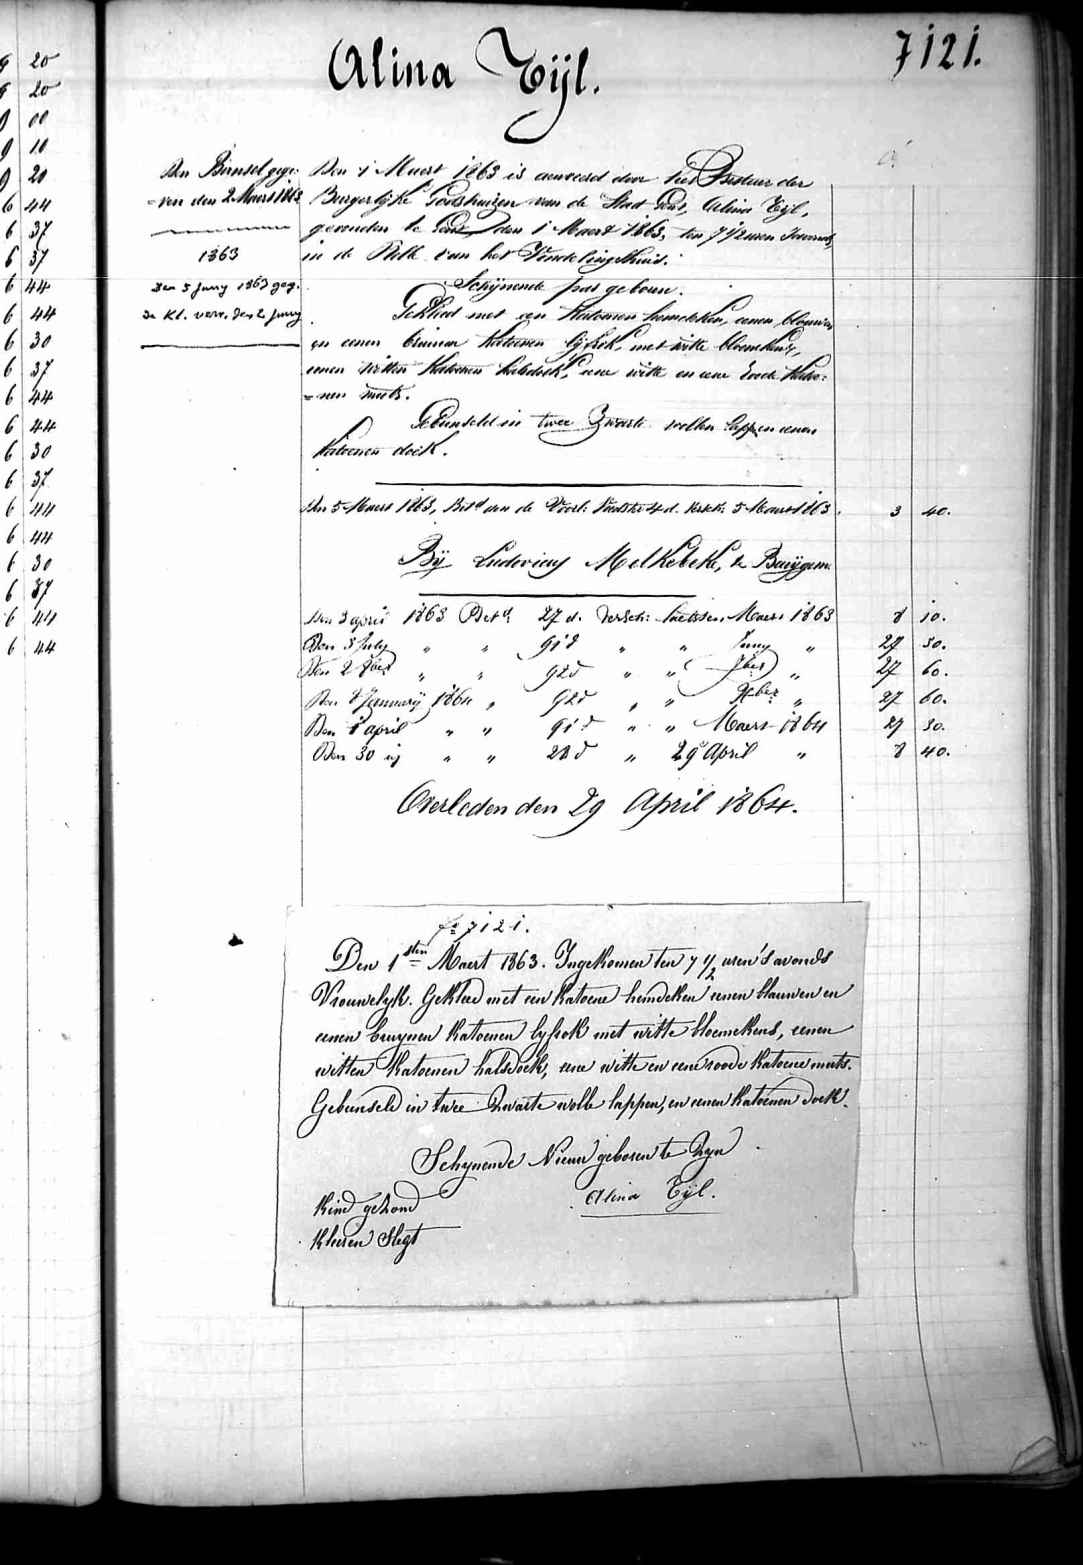 Alina Tÿl.
7121.
9 20
9 20
9 00
9 10
9 20
6 44
6 37
6 37
6 44
6 44
6 30
6 37
6 44
6 44
6 30
6 37
6 44
6 44
6 30
6 37
6 44
6 44
Den Bunsel gege:
=ven den 2 Maert 1863
1863
Den 5 Juny 1863 geg.
de Kl. verv. den 2 Juny
Den 1 Maert 1863 is aenveerd door het Bestuer der
Burgerlÿke Godshuizen van de Stad Gent, Alina Tÿl,
gevonden te Gent den 1 Maert 1863, ten 7 1/2 uren 'savonds,
in de Rolle van het Vondelingshuis.
Schÿnende pas geboren.
Gekleed met een Katoenen hemdeken, eenen blauwen
en eenen bruinen Katoenen lÿfrok, met witte bloemkens,
eenen witten Katoenen halsdoek, eene witte en eene roode Katoe:
=nen muts.
Gebunseld in twee Zwarte wollen lappen eenen
Katoenen doek.
Den 5 Maert 1863, Bet.d aen de Voorl. 4 d. 5 Maert 1863. 3 40.
Bÿ Ludovicus Melkebeke, te Baeÿgem.
Den 3 april 1863 Bet.d 27 d. Versch: Maert 1863 8 10.
Den 3 July " " 91 d " " Juny " 27 30.
Den 2 8ber " " 92 d " " 7ber " 27 60.
Den 8 Januarÿ 1864 " 92 d " " Xber " 27 60.
Den 1 april " " 91 d " " Maert 1864 27 30.
Den 30 ij " " 28 d " 29 April " 8 40.
Overleden den 29 April 1864.
f.o 7121.
Den 1sten Maert 1863. Ingekomen ten 7 1/2 uren 's avonds
Vrouwelyk. Gekleed met een Katoene hemdeken eenen blauwen en
eenen bruynen Katoenen lyfrok met witte bloemekens, eenen
witten Katoenen halsdoek, eene witte en eene roode Katoene muts.
Gebunseld in twee Zwarte wolle lappen, en eenen Katoenen doek.
Schynende Nieuw geboren te Zyn
Kind gezond
Alina Tÿl.
Kleeren Slegt